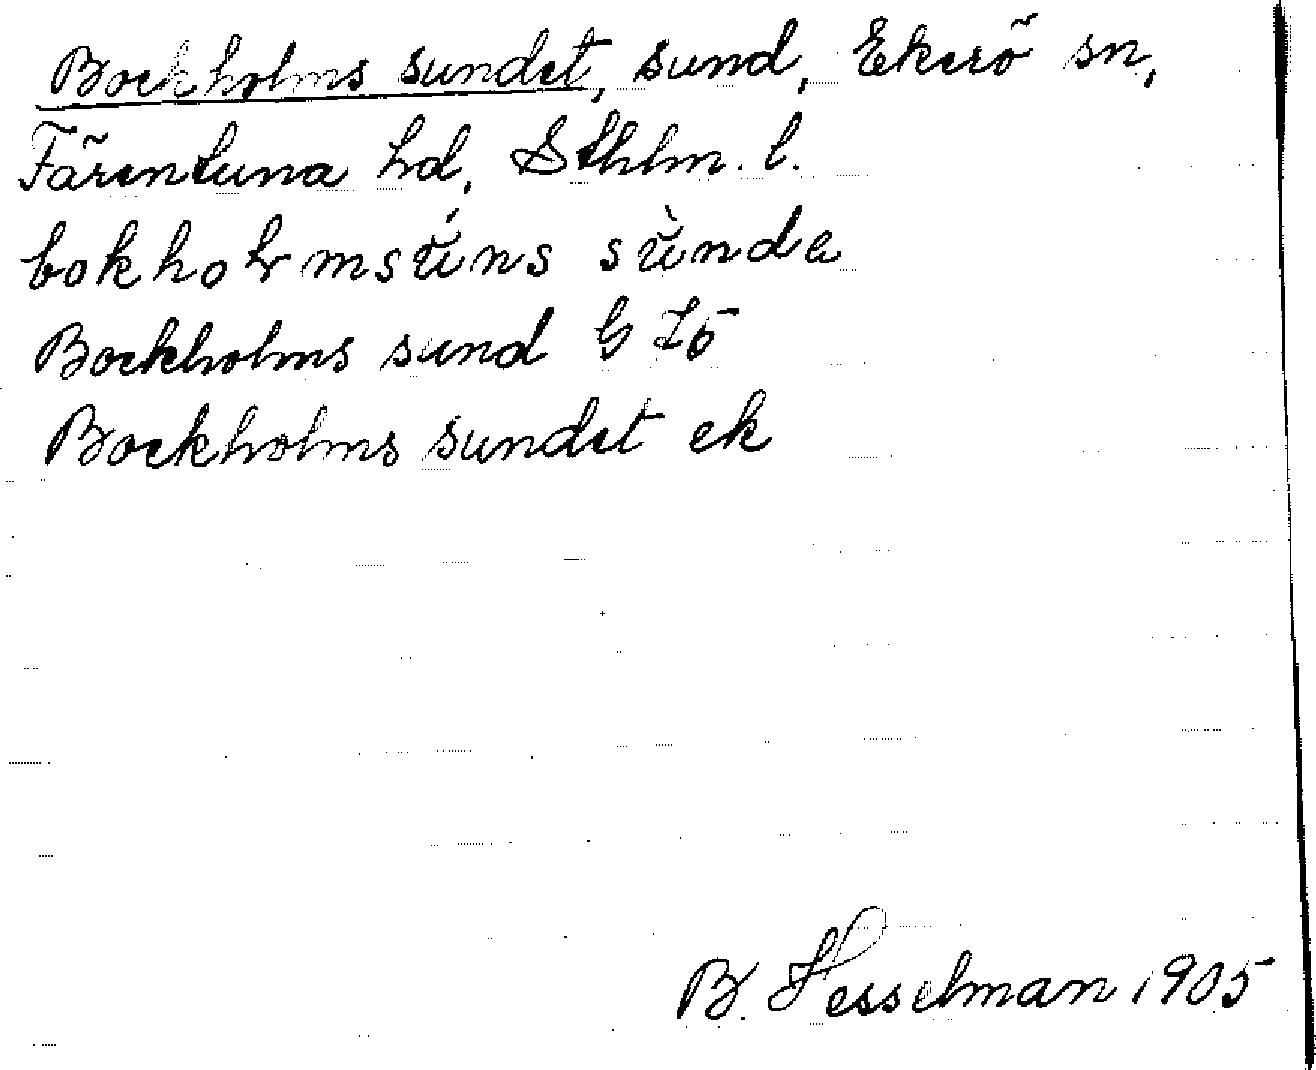 Bockholms sundet, sund, Ekerö sn,
Färentuna hd, Sthlm. l.
bokholmsúns sùnda
Bockholms sund G 75
Bockholms sundet ek
B. Hesselman 1905